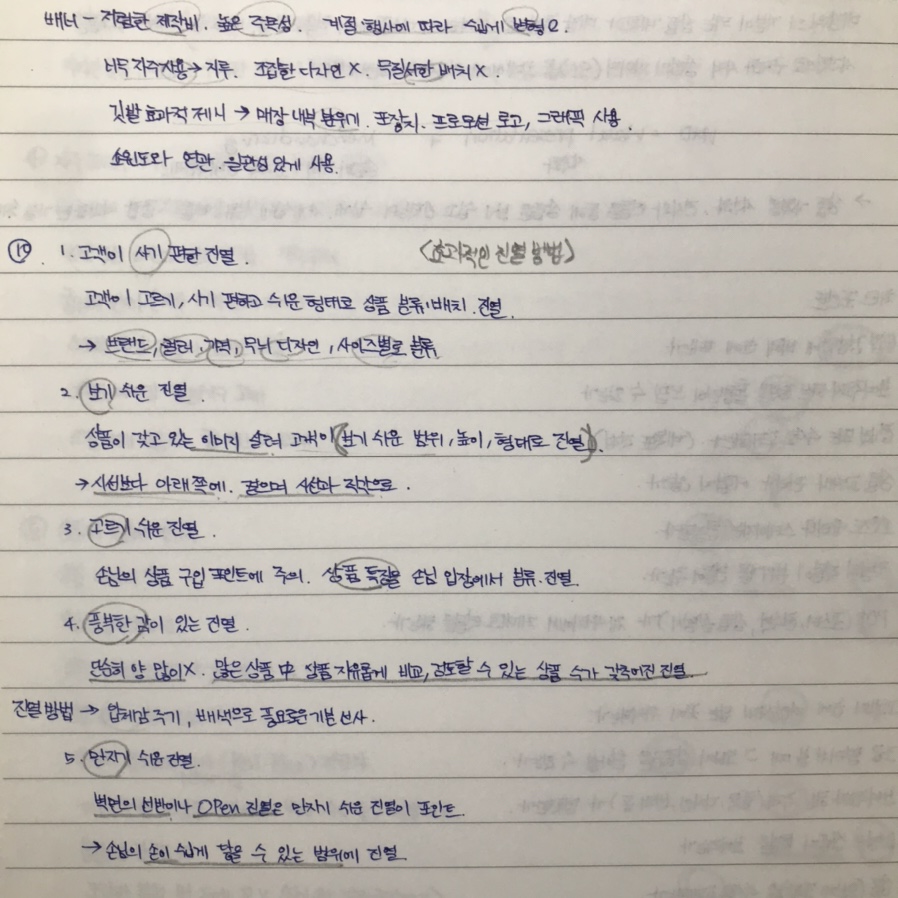 배너 - 저렴한 제작비. 높은 주목성. 계절 행사에 따라 쉽게 변형 O.
너무 자주 사용 → 지루. 조잡한 디자인 X. 무질서한 배치 X.
깃발 효과적 제시 → 매장 내부 분위기. 포장지. 프로모션 로고, 그래픽 사용.
쇼윈도와 연관. 일관성 있게 사용.
⑮ 1. 고객이 사기 편한 진열. <효과적인 진열 방법>
고객이 고르기, 사기 편하고 쉬운 형태로 상품 분류·배치. 진열.
→ 브랜드, 컬러, 가격, 무늬 디자인, 사이즈별로 분류.
2. 보기 쉬운 진열.
상품이 갖고 있는 이미지 살려 고객이 (보기 쉬운 범위, 높이, 형태로 진열).
→ 시선보다 아래쪽에. 걸으며 시선과 직각으로.
3. 고르기 쉬운 진열.
손님의 상품 구입 포인트에 주의. 상품 특징을 손님 입장에서 분류. 진열.
4. 풍부한 감이 있는 진열.
단순히 양 많이 X. 많은 상품 中 상품 자유롭게 비교, 검토할 수 있는 상품 수가 갖추어진 진열.
진열 방법 → 입체감 주기, 배색으로 풍요로운 기분 선사.
5. 만지기 쉬운 진열.
벽면의 선반이나 open 진열은 만지기 쉬운 진열이 포인트
→ 손님의 손이 쉽게 닿을 수 있는 범위에 진열.